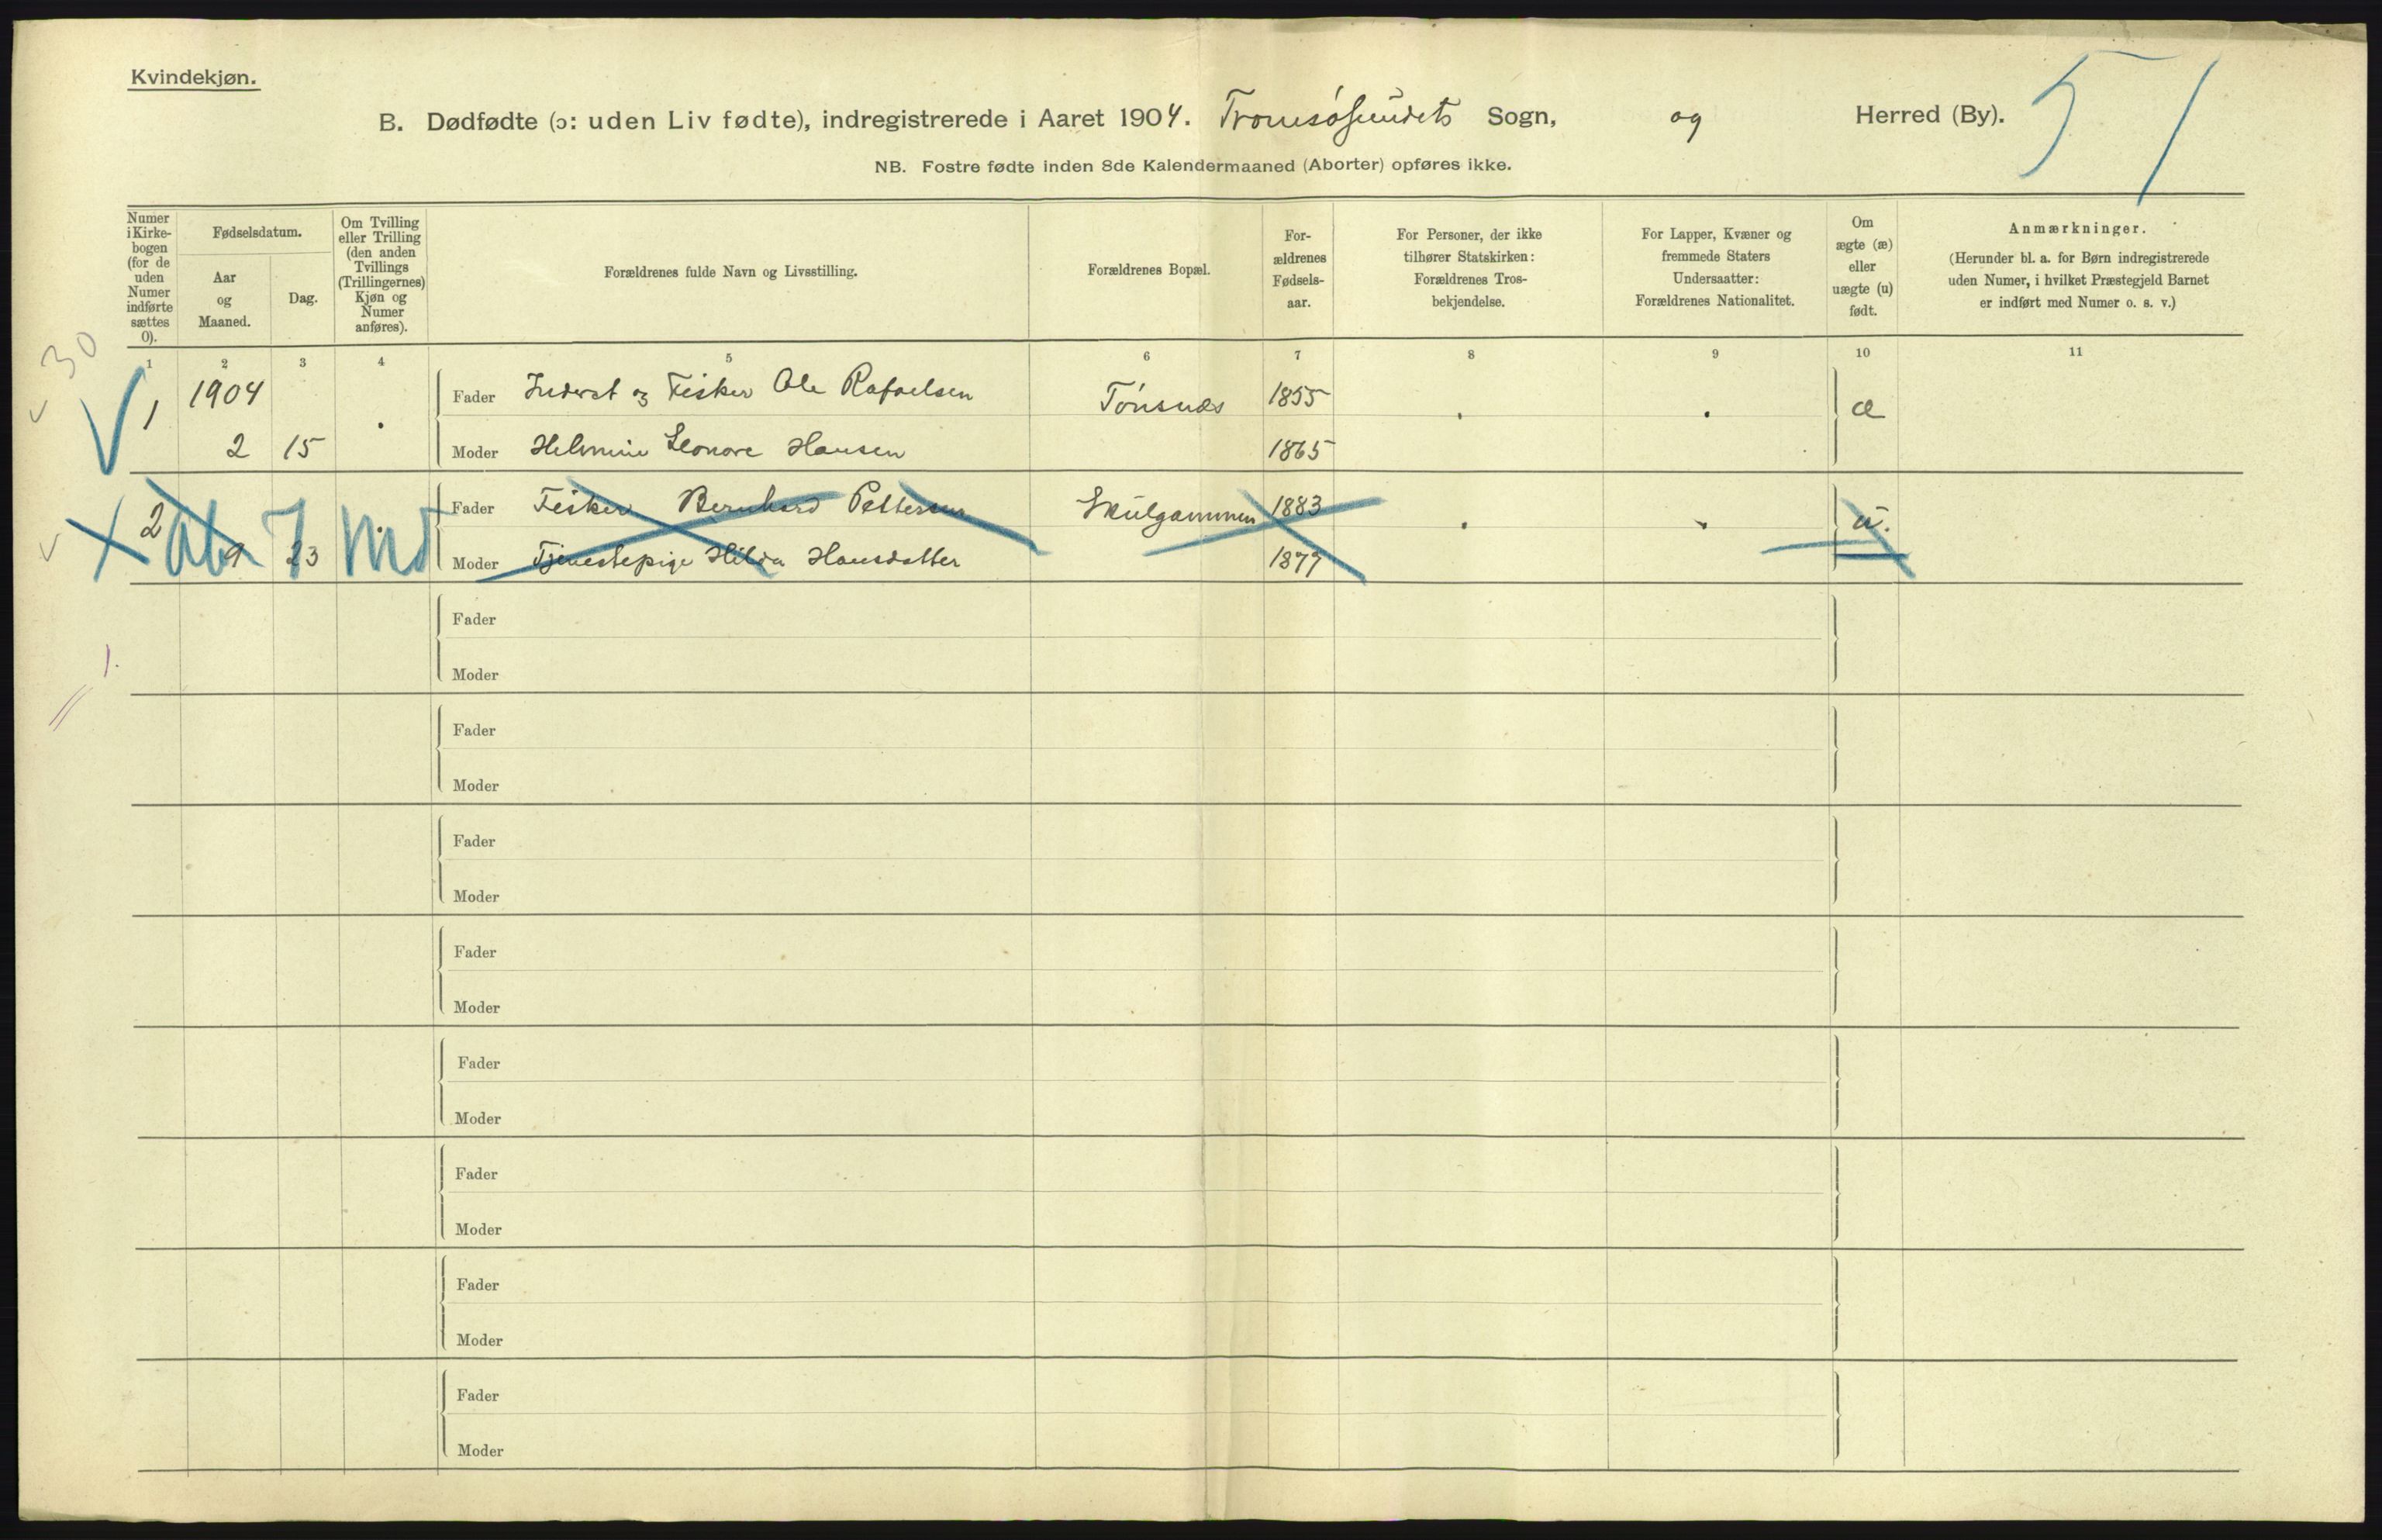 Kvindekjøn.
B. Dødfødte (ɔ: uden Liv fødte), indregistrerede i Aaret 1904. Tromsøsundets Sogn, og Herred (By). 51
NB. Fostre fødte inden 8de Kalendermaaned (Aborter) opføres ikke.
Numer i Kirkebogen (for de uden Numer indførte sættes 0).
Fødselsdatum.
Aar og Maaned.
Dag.
Om Tvilling eller Trilling (den anden Tvillings (Trillingernes) Kjøn og Numer anføres).
Forældrenes fulde Navn og Livsstilling.
Forældrenes Bopæl.
Forældrenes Fødselsaar.
For Personer, der ikke tilhører Statskirken: Forældrenes Trosbekjendelse.
For Lapper, Kvæner og fremmede Staters Undersaatter: Forældrenes Nationalitet.
Om ægte (æ) eller uægte (u) født.
Anmærkninger.
(Herunder bl. a. for Børn indregistrerede uden Numer, i hvilket Præstegjeld Barnet er indført med Numer o. s. v.)
1 2 3 4 5 6 7 8 9 10 11
30
1 1904 Fader Inderst og Fisker Ole Rafaelsen Tönsnæs 1855 æ
2 15 Moder Helmine Leonore Hansen 1865
2 Fader Fisker Bernhard Pettersen Skulgammen 1883 u.
9 23 Moder Tjenestepige Hilda Hansdatter 1877
Ab. 7 Md
Fader
1.
Moder
Fader
Moder
Fader
Moder
Fader
Moder
Fader
Moder
Fader
Moder
Fader
Moder
Fader
Moder